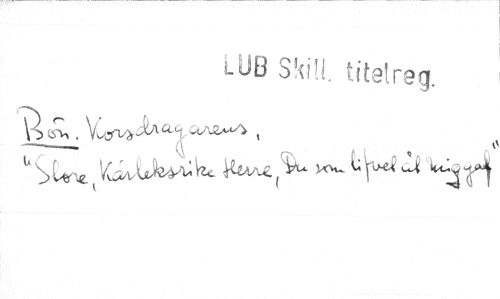 LUB Skill. titelreg.
Bön. Korsdragarens,
"Store, Kärleksrike Herre, Du som lifvet åt mig gaf"